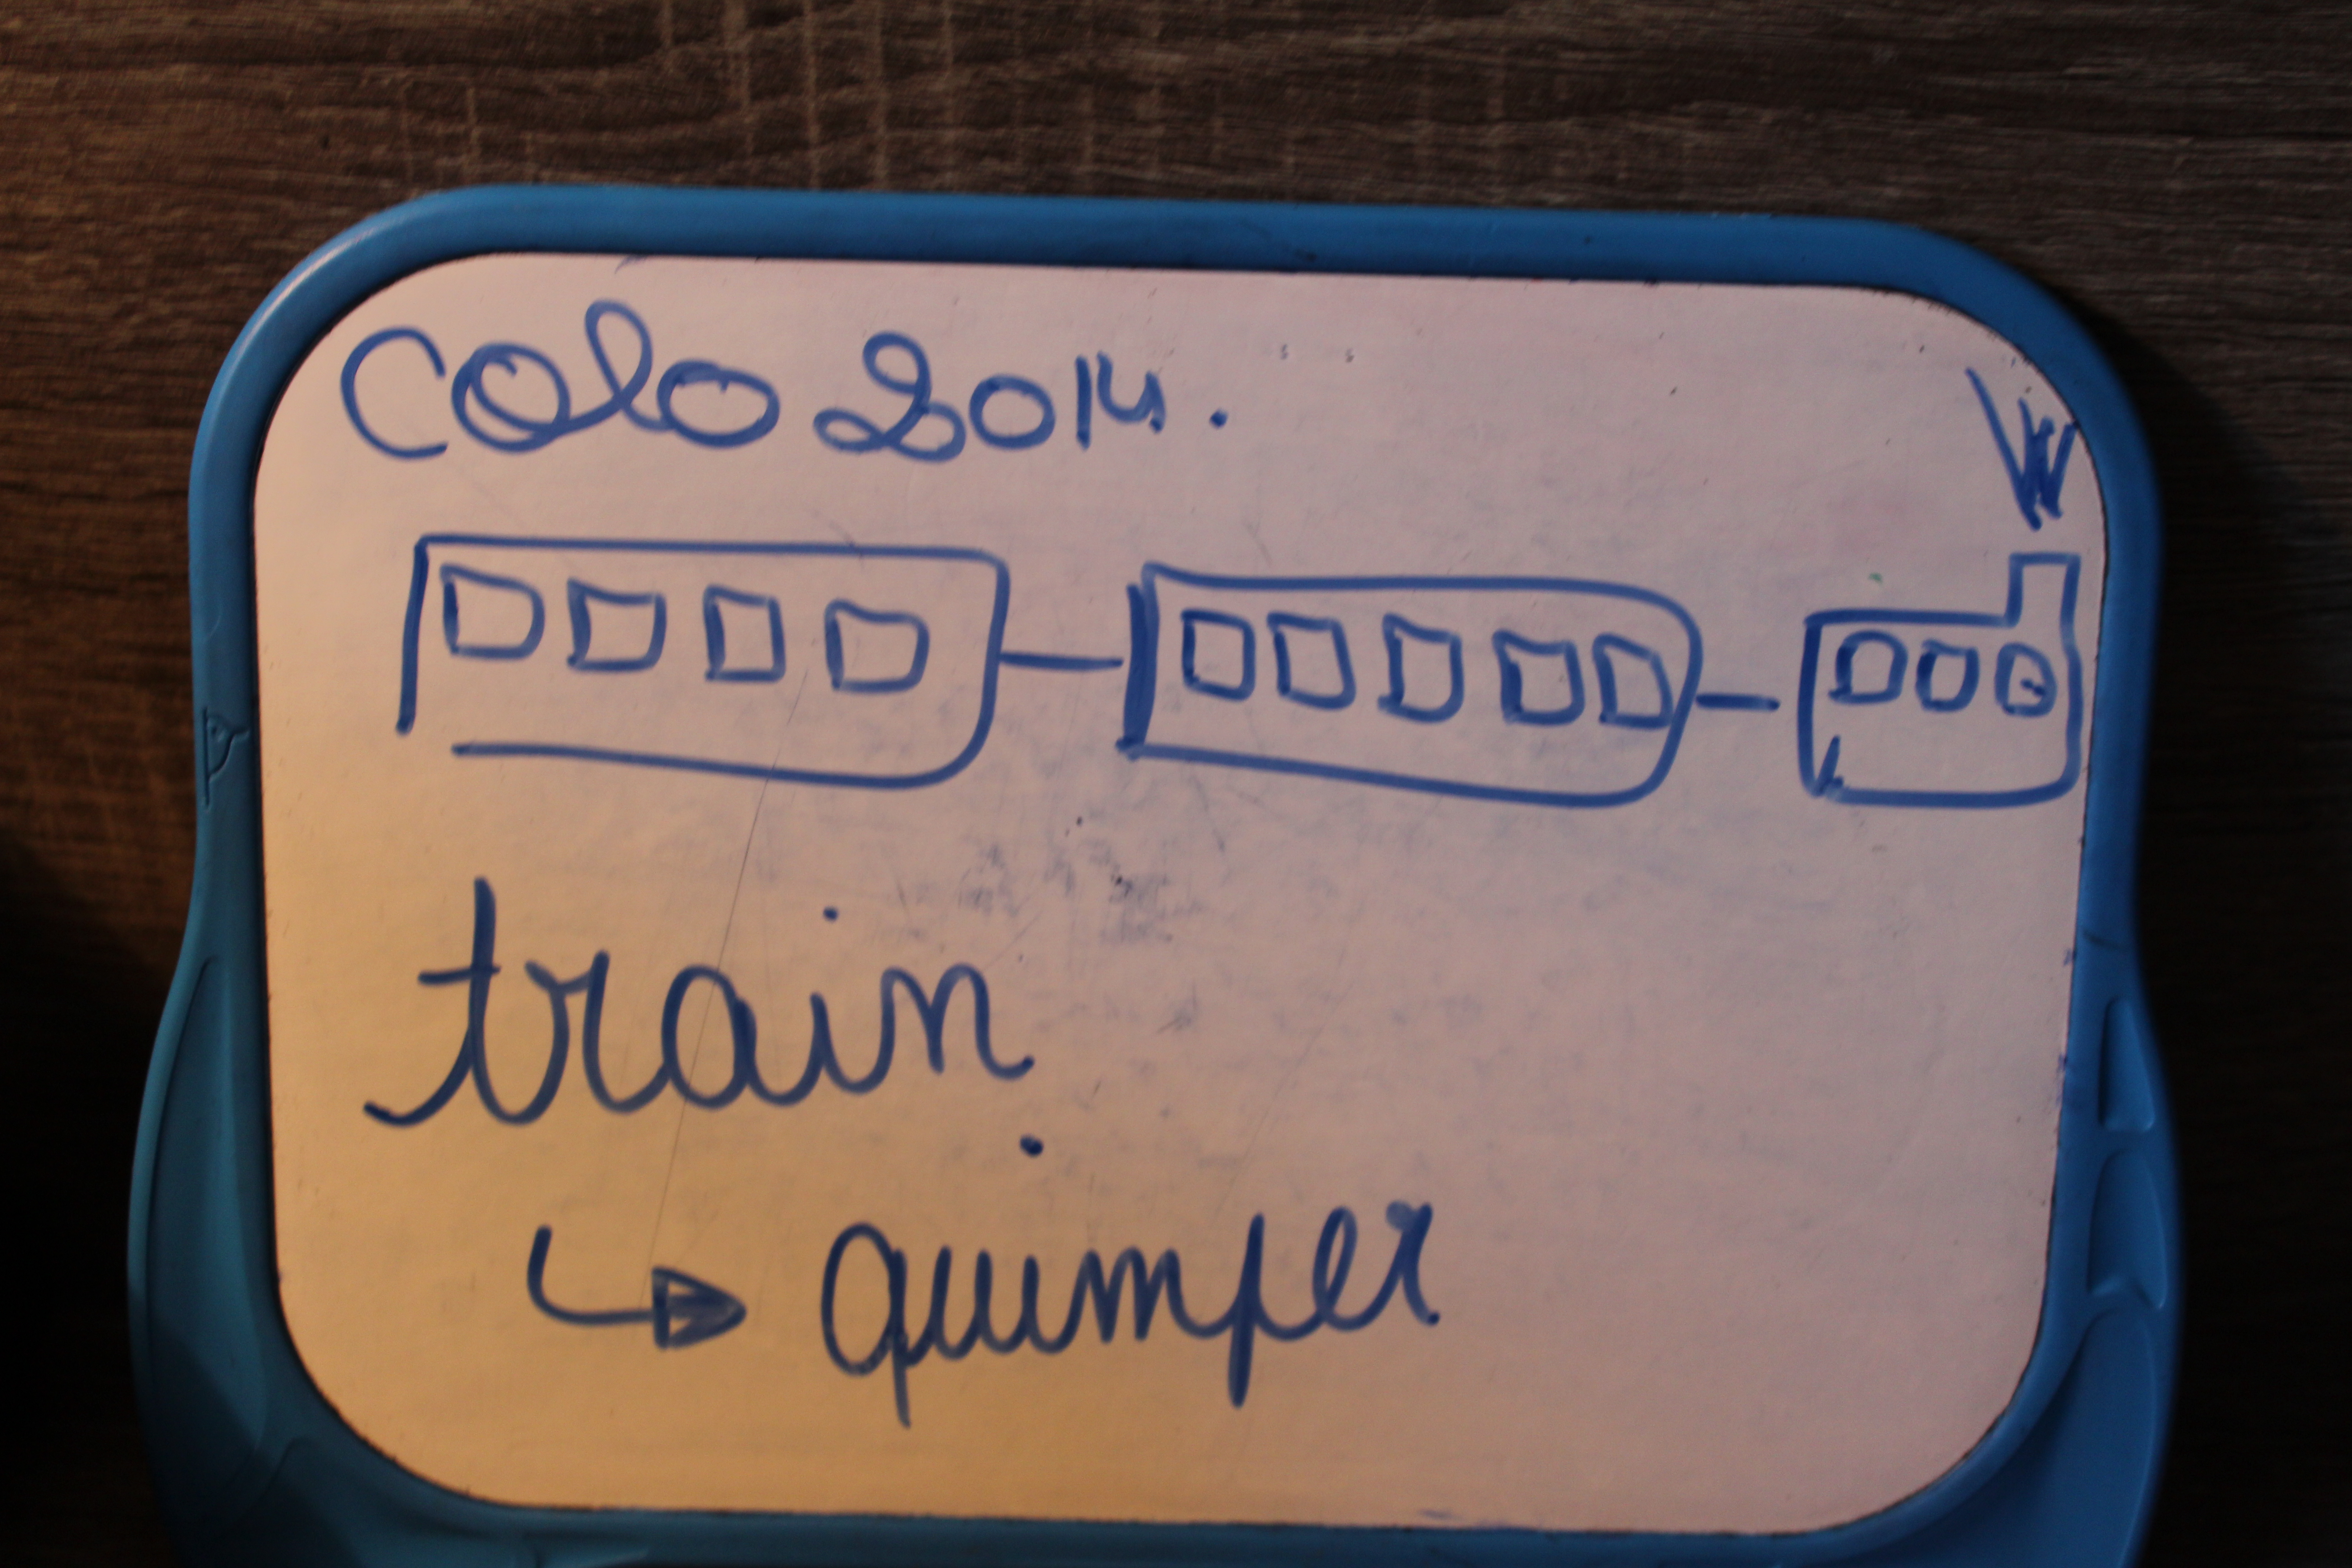 Colo 2014.
train
quimper